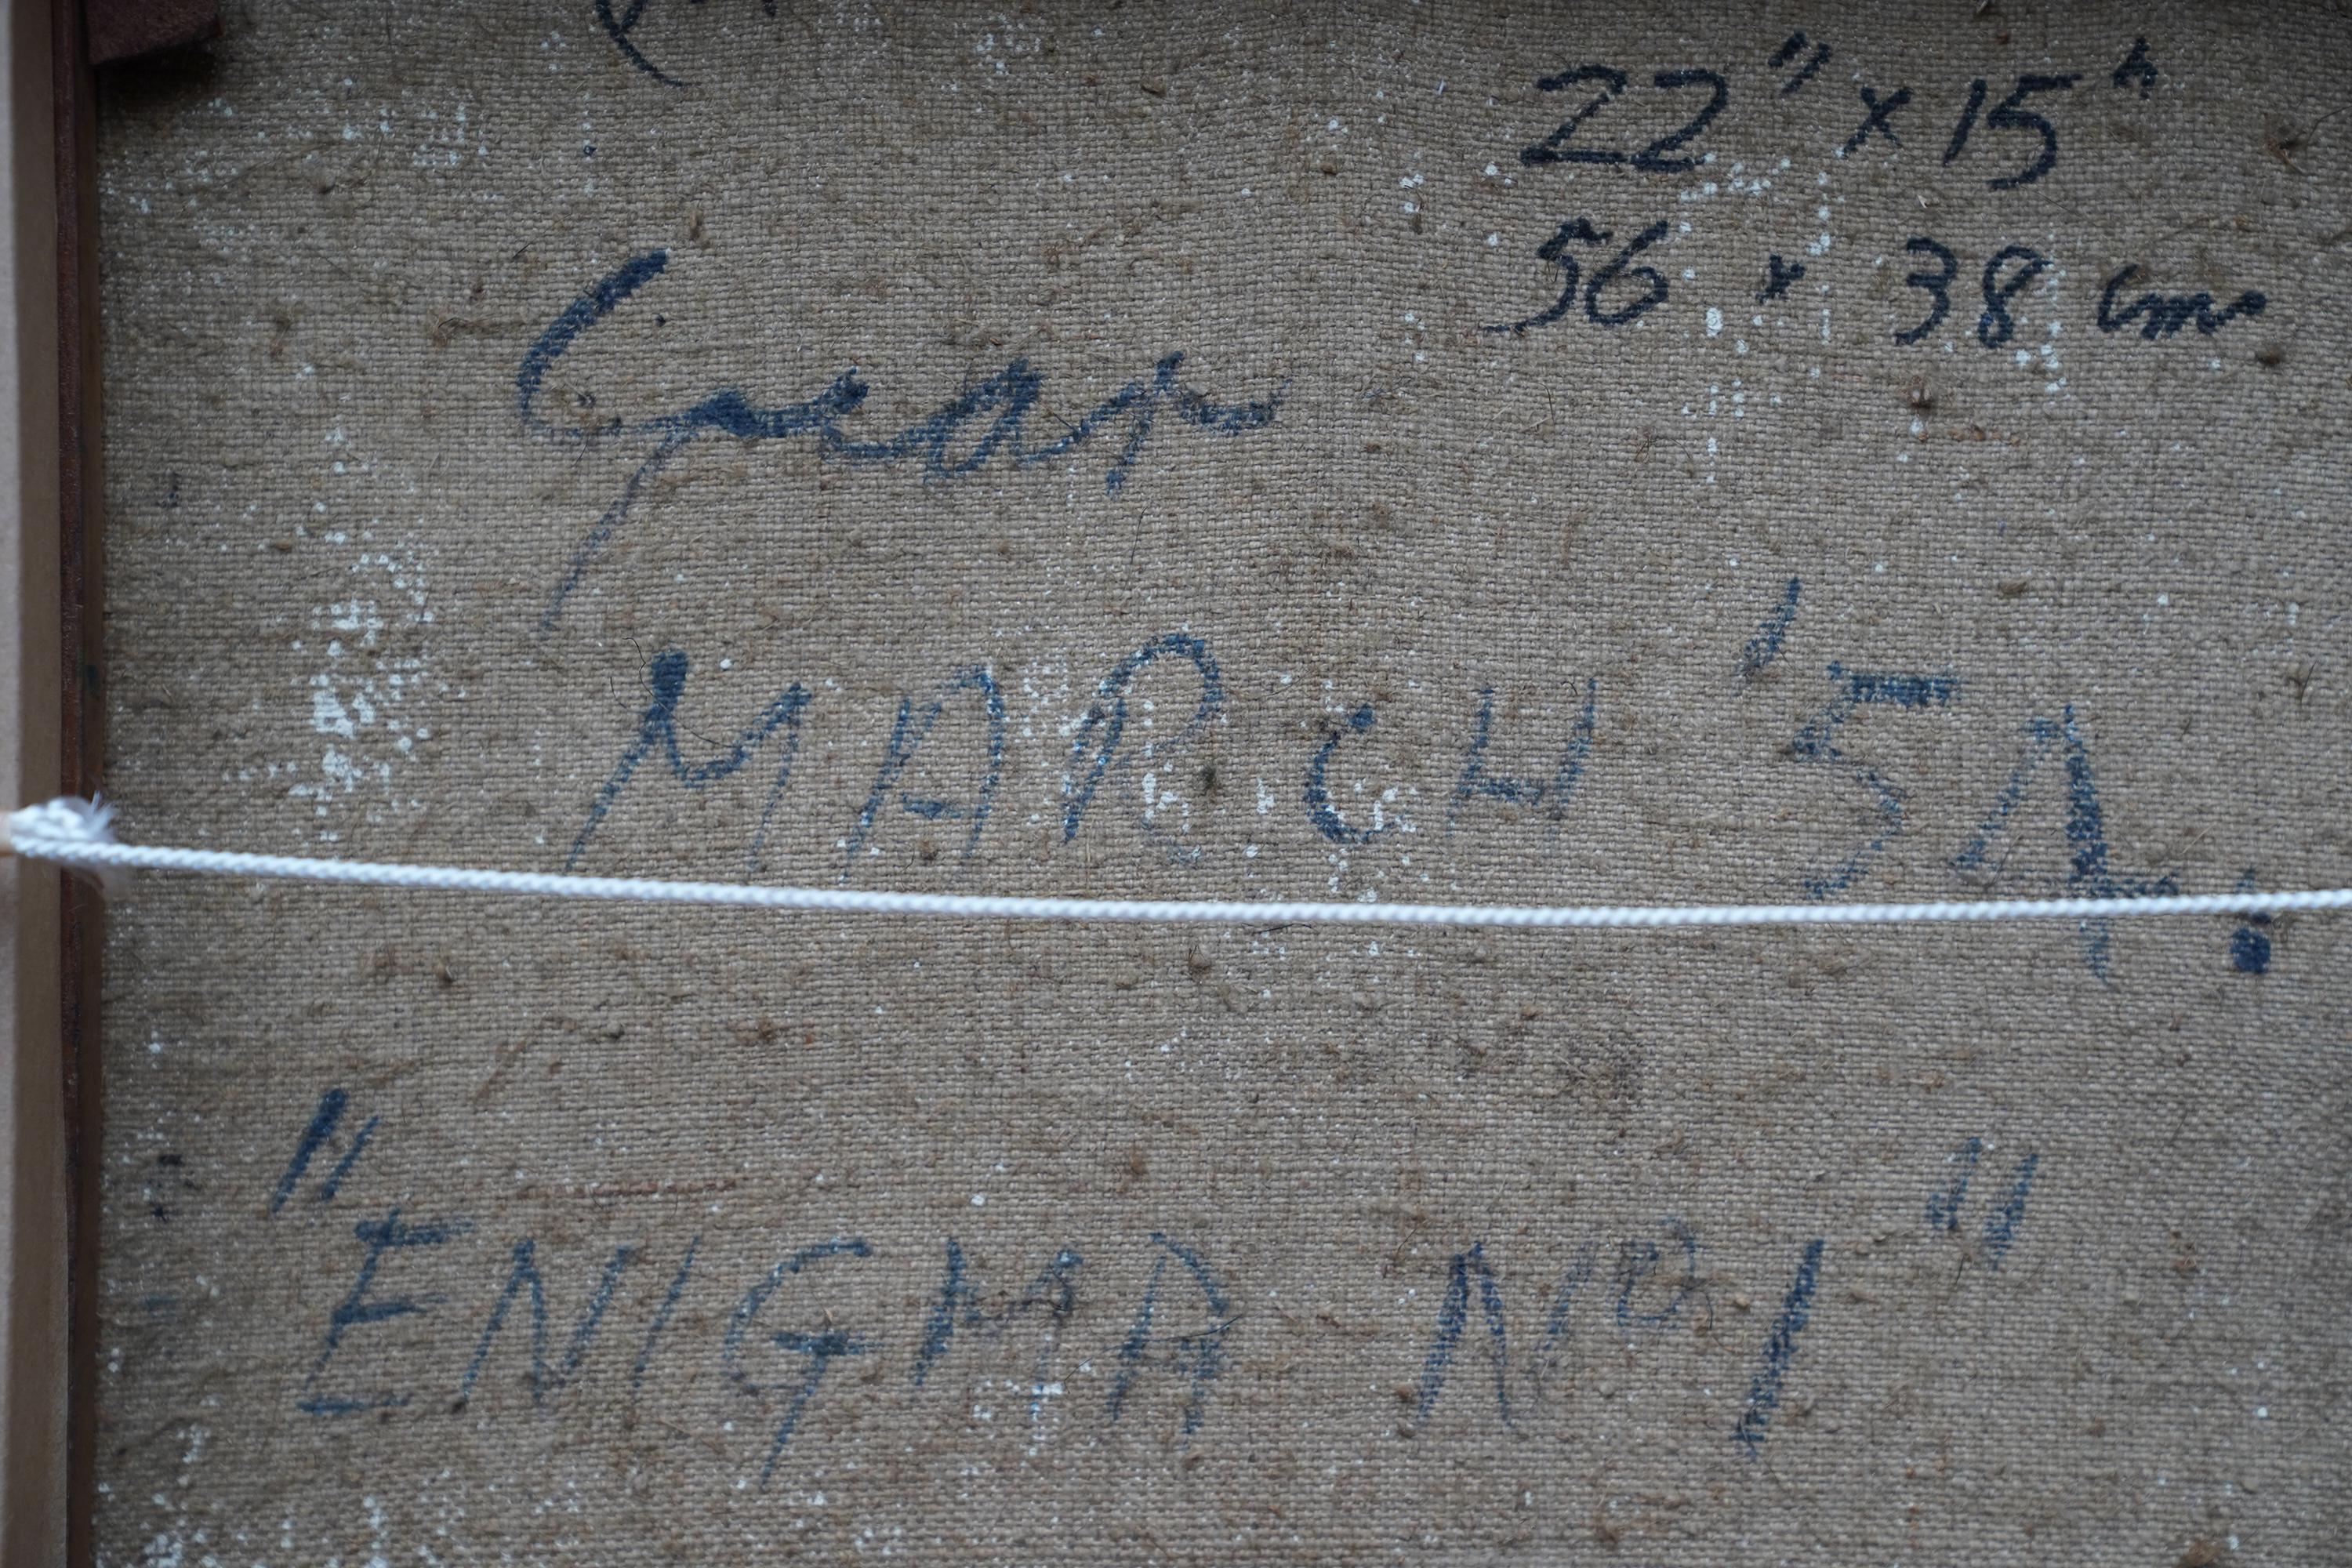 22" x 15"
56 x 38 cm
Gear
MARCH '54.
"ENIGMA Nº 1"